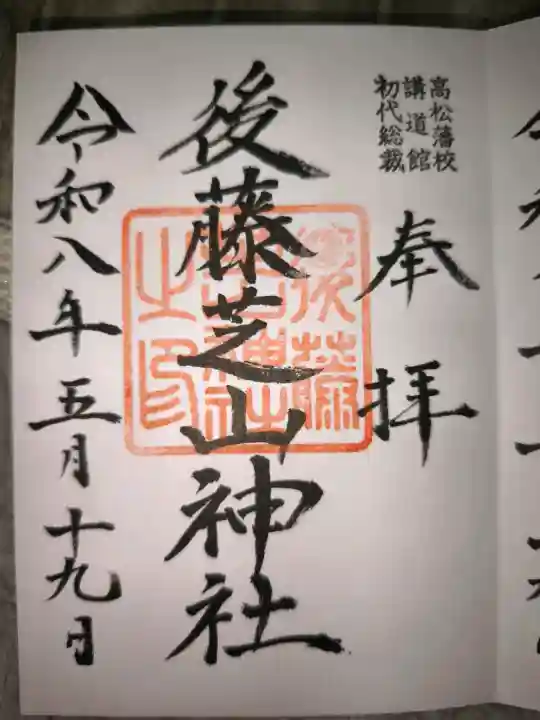 高松藩校
講道館
初代総裁
奉拝
後藤芝山神社
後藤
芝山神社
之印
令和八年五月十九日